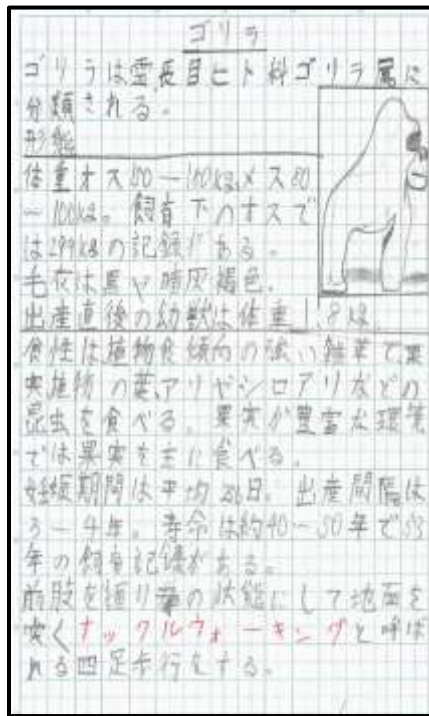 ゴリラ
ゴリラは霊長目ヒト科ゴリラ属に
分類される。
形態
体重オス150－180kg、メス80
－100kg。飼育下のオスで
は299kgの記録がある。
毛衣は黒や暗灰褐色。
出産直後の幼獣は体重1.8kg
食性は植物食傾向の強い雑草で、果
実植物の葉、アリやシロアリなどの
昆虫を食べる。果実が豊富な環境
では果実を主に食べる。
妊娠期間は平均 日。出産間隔は
3－4年。寿命は約40－50年で53
年の飼育記録がある。
前肢を握り拳の状態にして地面を
突くナックルウォーキングと呼ば
れる四足歩行をする。